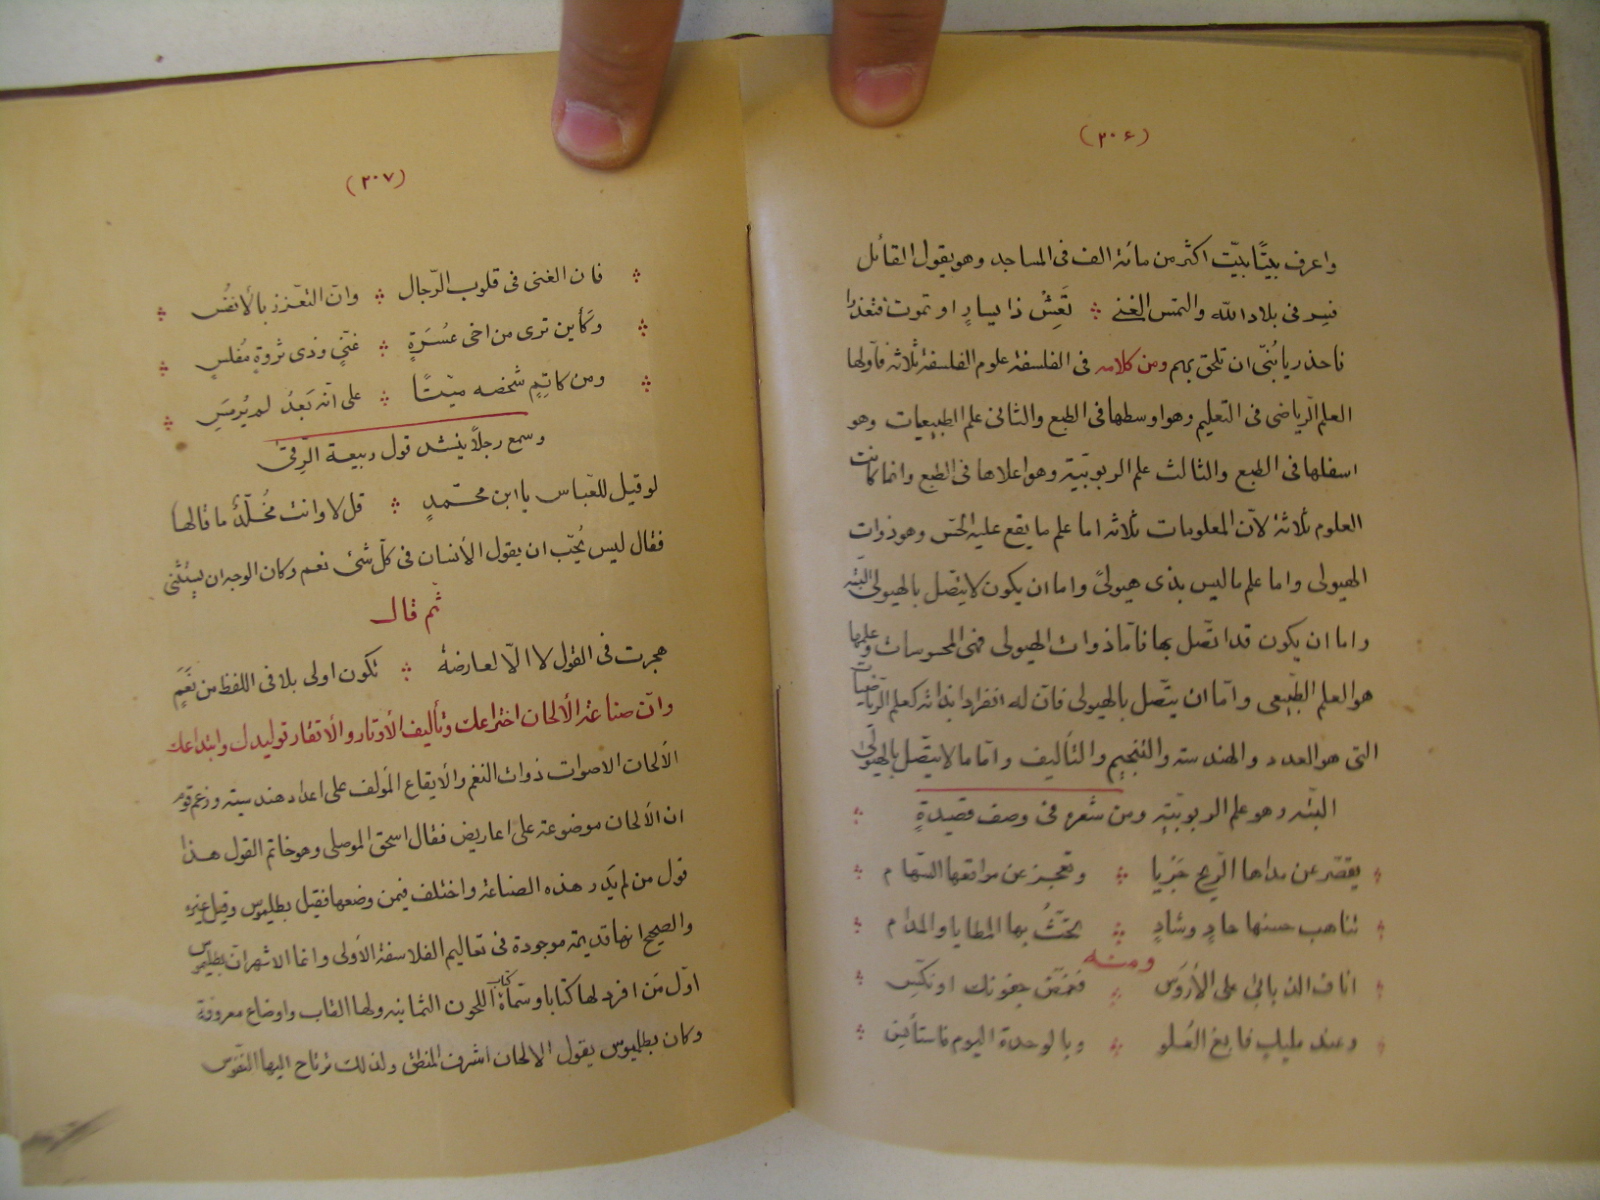 (٢٠٦)
واعرف بيتًا بيّت اكثر من مائة الف فى المساجد وهو يقول القائل
فسر فى بلاد الله والتمس الغنى ∴ تَعِشْ ذا يسارٍ او تموت فتعذرا
فاحذر يا بُنّى ان تلحق بهم ومن كلامه فى الفلسفة علوم الفلسفة ثلاثه فاولها
العلم الرياضى فى التعليم وهو اوسطها فى الطبع والثانى علم الطبيعيات وهو
اسفلها فى الطبع والثالث علم الربوبيّة وهو اعلاها فى الطبع وانما كانت
العلوم ثلاثة لانّ المعلومات ثلاثه اما علم ما يقع عليه الحسّ وهو ذوات
الهيولى واما علم ما ليس بذى هيولىً واما ان يكون لا يتّصل بالهيولى البتّه
واما ان يكون قد اتصّل بها فامّا ذوات الهيولى فهى المحسوسات وعلمها
هو العلم الطّبيعى وامّا ان يتّصل بالهيولى فانّ له انفرادا بذاته كعلم الرياضيات
التى هو العدد والهندسة والتنجيم والتأليف وامّا ما لا يتّصل بالهيولى
البتّه وهو علم الربوبيّه ومن شعره فى وصف قصيدةٍ
يقصّر عن مداها الريح جريا ∴ وتعجز عن مواقعها السّهام
تناهب حسنها حادٍ وشادٍ ∴ يحثّ بها المطايا والمدام
ومنه
اناف الذنابى على الأرؤس ∴ فغمّض جفونك او نكّس
وعند مليك فابغ العُلو ∴ وبالوحدة اليوم فاستأنس
(٢٠٧)
فان الغنى فى قلوب الرّجال ∴ وانّ التعزز بالأنفُس
وكأين ترى من اخى عُسْرَةٍ ∴ غنّىٍ وذى ثروةٍ مُفلسٍ
ومن كاتمٍ شخصه ميّتًا ∴ على انّه بَعدُ لم يُرمَس
وسمع رجلاً ينشد قول ربيعة الرّقىّ
لو قيل للعّباس يا ابن محّمدٍ ∴ قل لا وانت مُخلّدٌ ما قالها
فقال ليس يُحبّ ان يقول الأنسان فى كلّ شئ نعم وكان الوجه ان يستثنى
ثم قال
هجرت فى القول لا الّا لعارضة ∴ تكون اولى بلا فى اللفظ من نَعَمٍ
وانّ صناعة الألحان اختراعك وتأليف الأوتار والأنقار توليدك وابتداعك
الألحان الاصوات ذوات النغم والايقاع المؤلف على اعداد هندسيّه وزعم قوم
ان الألحان موضوعة على اعاريض فقال اسحق الموصلى وهو خاتم القول هذا
قول من لم يَدر هذه الصناعة واختلف فيمن وضعها فقيل بطليموس وقيل غيره
والصحيح انها قديمة موجودة فى تعاليم الفلاسفة الأولى وانما الاشهر ان بطليموس
اوّل من افرد لها كتابا وسّماهُ كتاب اللحون الثمانيه ولها القاب واوضاع معروفة
وكان بطليموس يقول الالحان اشرف المنطق ولذلك ترتاح اليها النّفوس